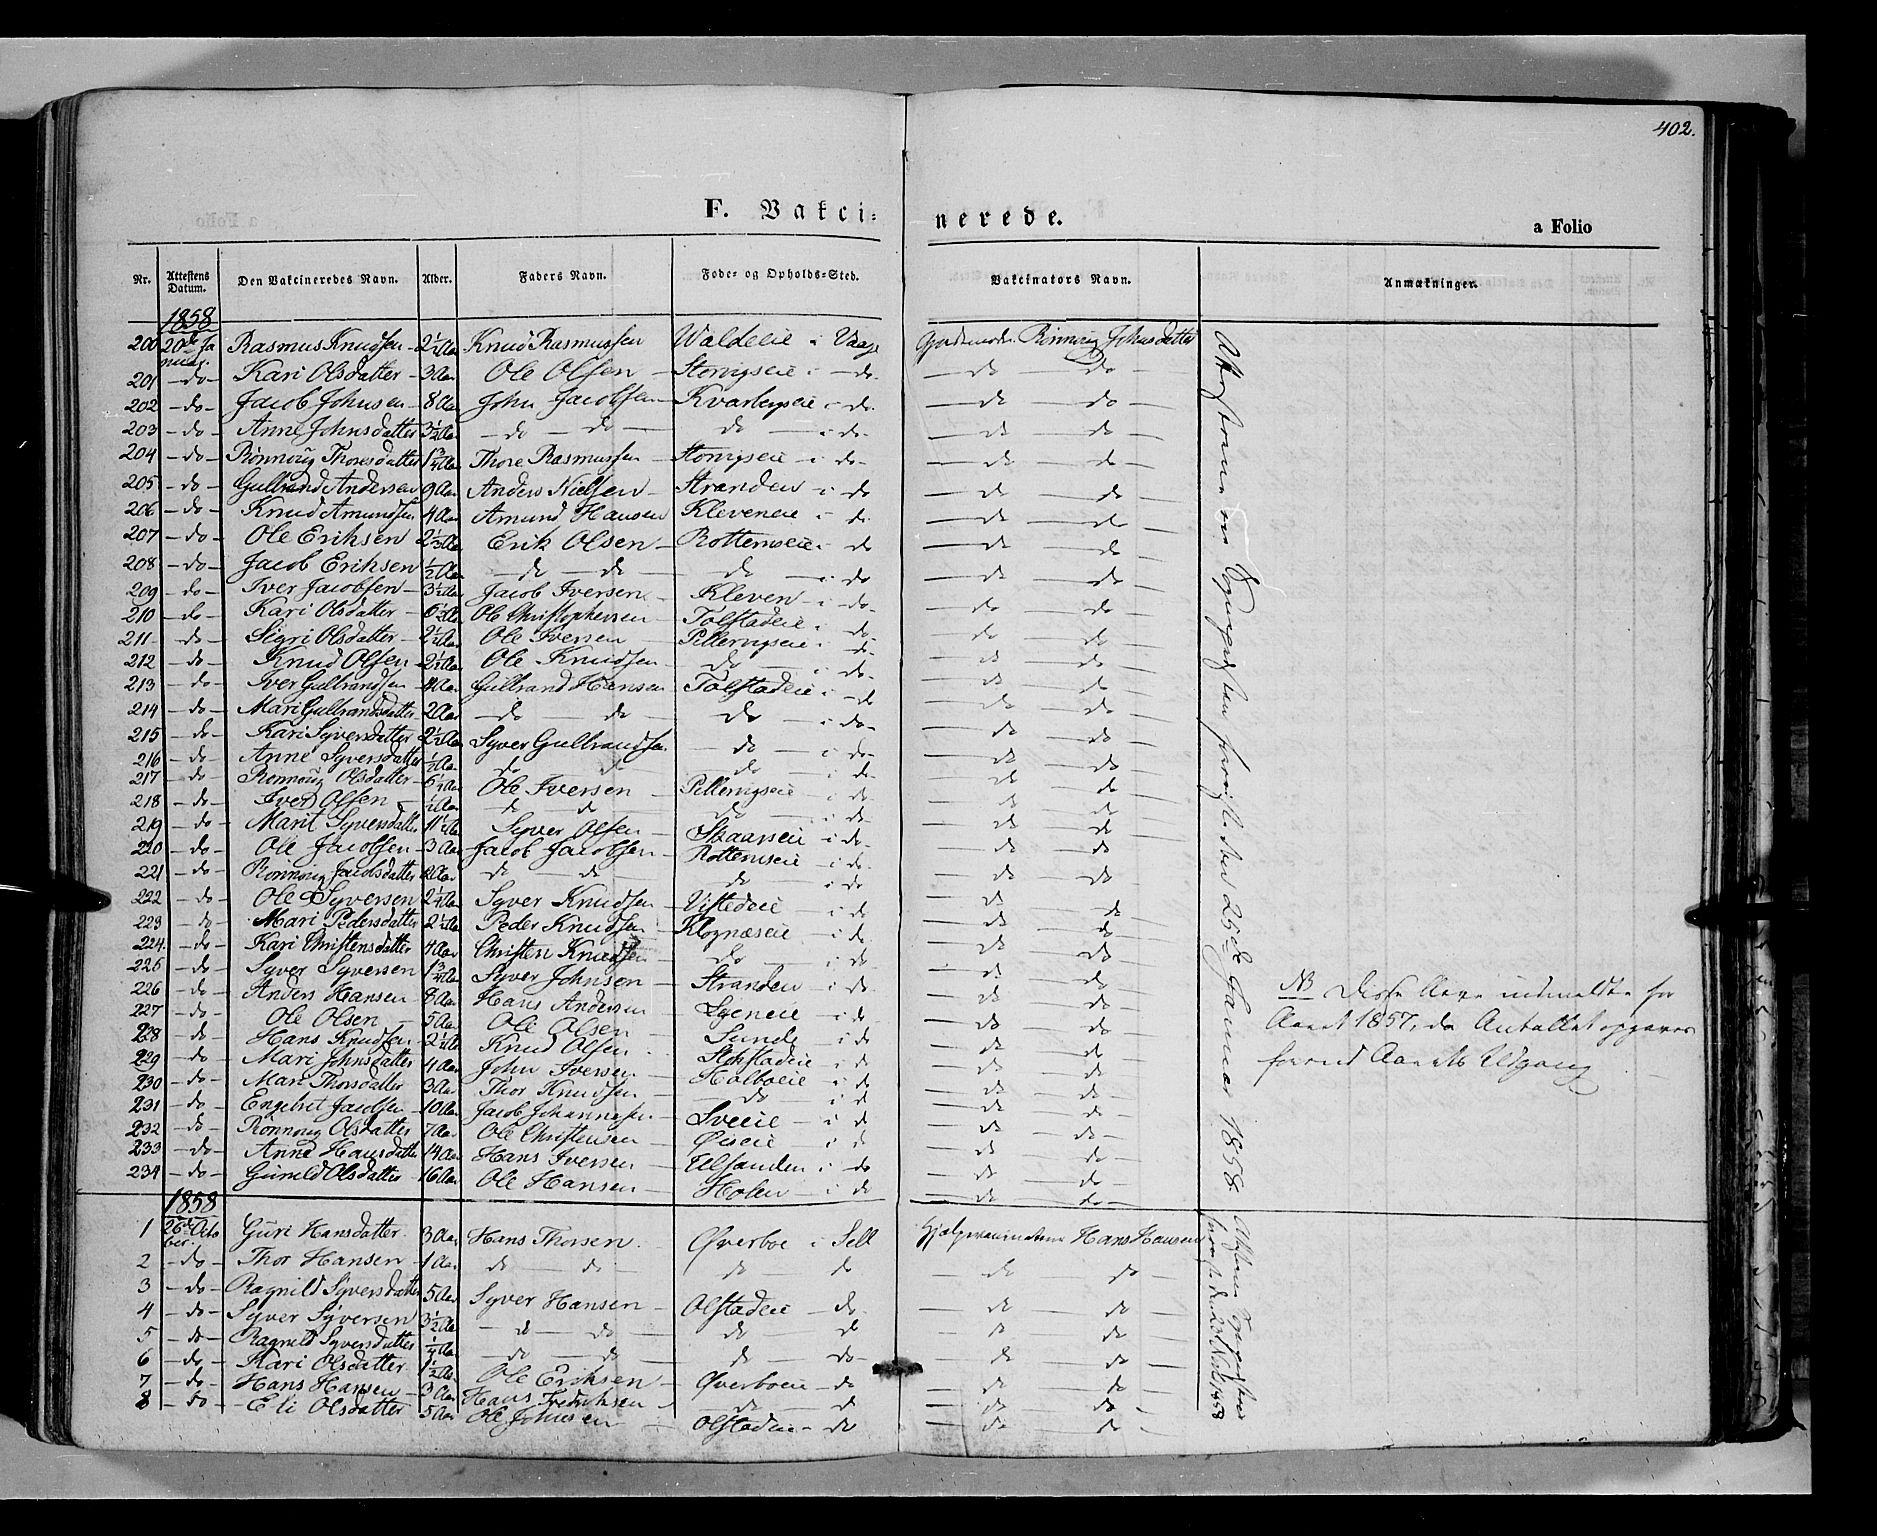 402.
F. Vakcinerede.
a Folio
Nr. Attestens Datum. Den Vakcineredes Navn. Alder. Faders Navn. Føde- og Opholds-Sted. Vakcinators Navn. Anmærkninger.
1858
200 20de Januar. Rasmus Knudsen 2½ Aar Knud Rasmussen Waldeie i Vaage Gjordemoder Rønnoug Johnsdatter
201 do Kari Olsdatter 3 Aar Ole Olsen Storvigseie i do do do
202 do Jacob Johnsen 8 Aar John Jacobsen Kvarbergseie i do do do
203 do Anne Johnsdatter 3½ Aar do do do i do do do
204 do Rønnoug Thoresdatter 1¾ Aar Thore Rasmussen Storvigseie i do do do
205 do Gulbrand Andersen 9 Aar Anders Nielsen Stranden i do do do
206 do Knud Amundsen 4 Aar Amund Hansen Kleveneie i do do do
207 do Ole Eriksen Erik Olsen Rottemseie i do do do
208 do Jacob Eriksen ½ Aar do do do i do do do
209 do Iver Jacobsen Jacob Iversen Kleven i do do do
210 do Kari Olsdatter Ole Christophersen Tolstadeie i do do do
211 do Sigri Olsdatter Ole Iversen Pillervigseie i do do do
212 do Knud Olsen Ole Knudsen do i do do do
213 do Iver Gulbrandsen Gulbrand Hansen Tolstadeie i do do do
214 do Mari Gulbrandsdatter 2 Aar do do do i do do do
215 do Kari Syversdatter Syver Gulbrandsen do i do do do
216 do Anne Syversdatter ½ Aar do do do i do do do
217 do Rønnoug Olsdatter Ole Iversen Pillervigseie i do do do
218 do Iver Olsen do do do i do do do
219 do Marit Syversdatter Syver Olsen Skaarseie i do do do
220 do Ole Jacobsen 3 Aar Jacob Jacobsen Rottemseie i do do do
221 do Rønnoug Jacobsdatter do do do i do do do
222 do Ole Syversen Syver Knudsen Vistedeie i do do do
223 do Mari Pedersdatter Peder Knudsen Klognæseie i do do do
224. do Kari Christensdatter 4 Aar Christen Knudsen do i do do do
225 do Syver Syversen 1¾ Aar Syver Johnsen Stranden i do do do
226 do Anders Hansen 8 Aar Hans Andersen i do do do
227 do Ole Olsen 5 Aar Ole Olsen Sunde i do do do
228 do Hans Knudsen Knud Olsen i do do do
229 do Mari Johnsdatter 4 Aar John Iversen Holboeie i do do do
230 do Mari Thorsdatter 3 Aar Thor Knudsen do i do do do
231 do Engebret Jacobsen 10 Aar Jacob Johannesen Sveeie i do do do
232 do Rønnoug Olsdatter 7 Aar Ole Christensen Øieeie i do do do
233 do Anne Hansdatter 14 Aar Hans Iversen Ulsanden i do do do
234 do Gunild Olsdatter 16 Aar Ole Hansen Holen i do do do
Attesterne om Vognpesten forviste den 25de Januar 1858.
NB Disse ere indmeldte for
Aaret 1857, da Antallet opgaves
forend Aarets Udgang
1858
1 26de October. Guri Hansdatter. 3 Aar Hans Thorsen. Øverboe i Sell Hjælpevaccinateur Hans Hansen
2 do Thor Hansen 1 Aar do do do do do do
3 do Ragnild Syversdatter 5 Aar Syver Hansen Olstadeie do do do
4 do Syver Syversen 3½ Aar do do do do do do
5 do Ragnild Syversdatter do do do do do do
6 do Kari Olsdatter. Ole Eriksen Øverboeie do do do
7 do Hans Hansen 3 Aar Hans Fredriksen do do do do
8 do Eli Olsdatter 5 Aar Ole Johnsen Olstadeie do do do